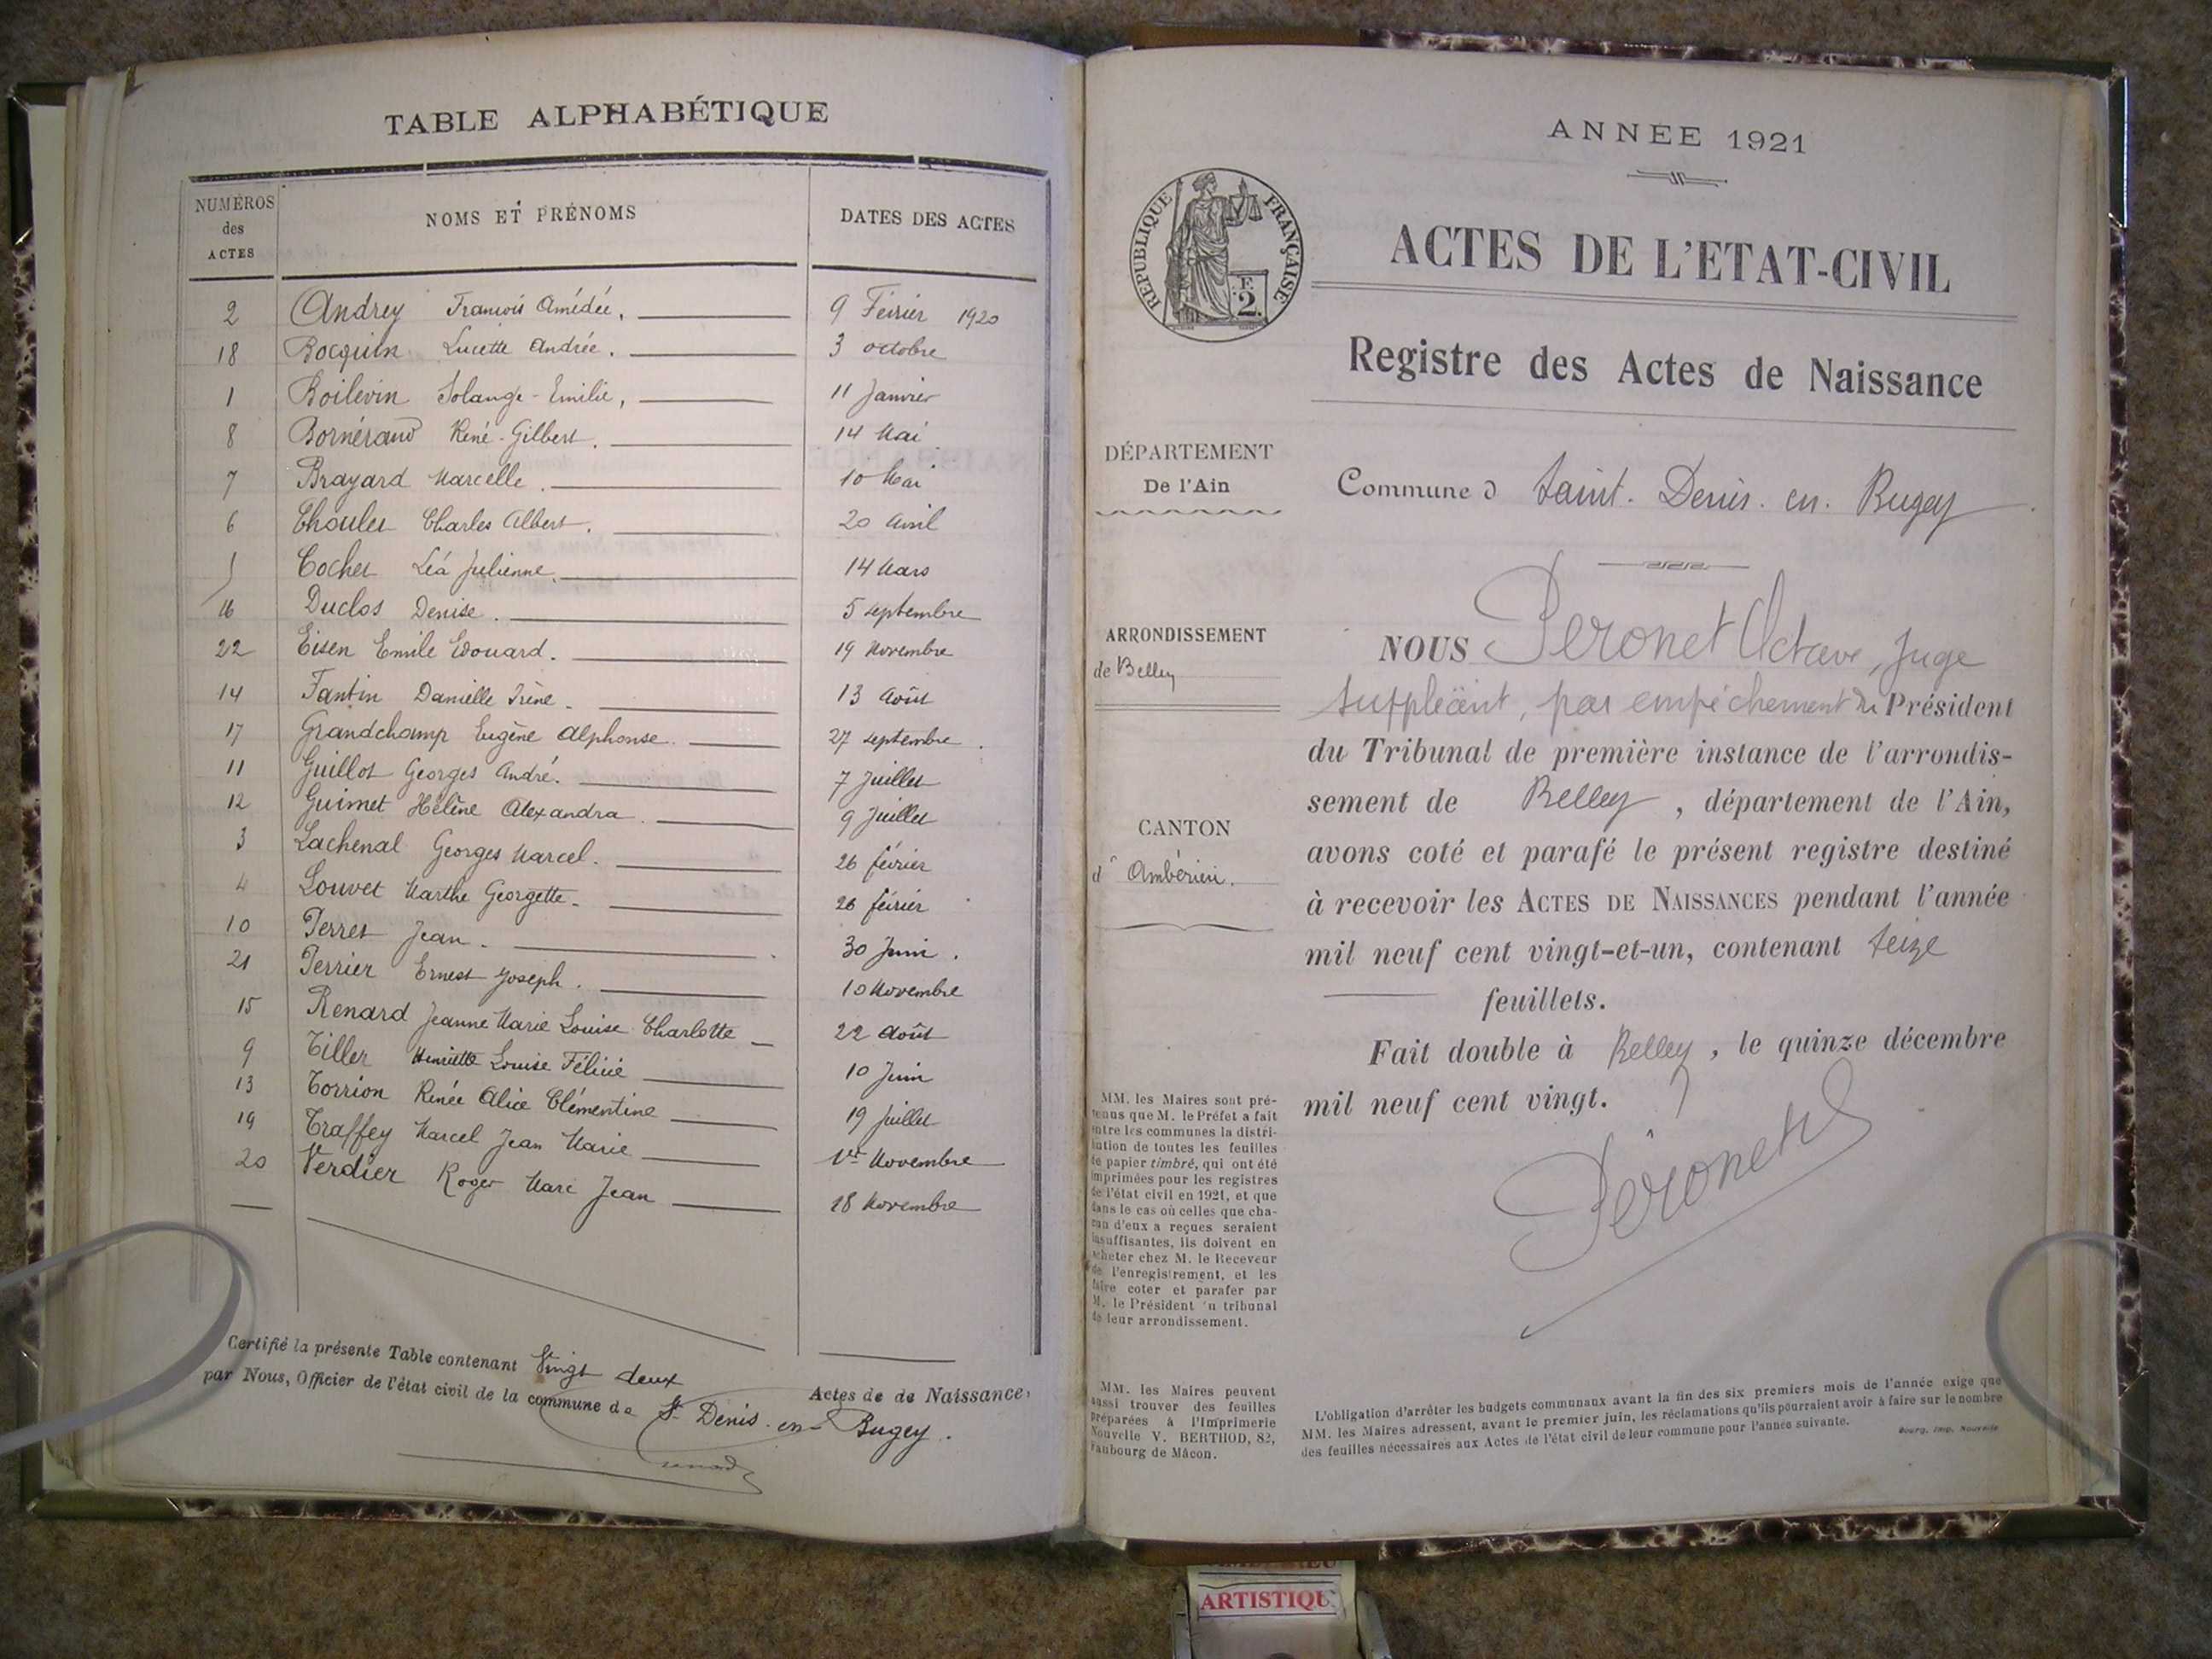 TABLE ALPHABÉTIQUE
NUMÉROS des ACTES NOMS ET PRÉNOMS DATES DES ACTES
2 Andrey François Amédée. 9 Février 1920
18 Bocquin Lucette Andrée. 3 octobre
1 Boilevin Solange-Emilie, 11 Janvier
8 Bornérand René-Gilbert. 14 Mai
7 Brayard Marcelle. 10 Mai
6 Choulet Charles Albert. 20 Avril
5 Cochet Léa Julienne. 14 Mars
16 Duclos Denise. 5 septembre
22 Eisen Emile Edouard. 19 Novembre
14 Fantin Danielle Irène. 13 Août
17 Grandchamp Eugène Alphonse. 27 septembre.
11 Guillot Georges André. 7 Juillet
12 Guimet Hélène Alexandra. 9 Juillet
3 Lachenal Georges Marcel. 26 février
4 Louvet Marthe Georgette. 26 février
10 Perret Jean. 30 Juin.
21 Perrier Ernest Joseph. 10 Novembre
15 Renard Jeanne Marie Louise Charlotte 22 Août
9 Tiller Henriette Louise Félicie 10 Juin
13 Torrion Renée Alice Clémentine 19 Juillet
19 Traffey Marcel Jean Marie 1er Novembre
20 Verdier Roger Marc Jean 18 Novembre
Certifié la présente Table contenant Vingt deux Actes de de Naissance,
par Nous, Officier de l'état civil de la commune de St Denis-en-Bugey.
ANNÉE 1921
RÉPUBLIQUE FRANÇAISE
2 F.
ACTES DE L'ETAT-CIVIL
Registre des Actes de Naissance
DÉPARTEMENT
De l'Ain
Commune d Saint. Denis. en. Bugey
ARRONDISSEMENT
de Belley
CANTON
d' Ambérieu.
NOUS Peronet Octave, Juge
suppléant, par empêchement du Président
du Tribunal de première instance de l'arrondis-
sement de Belley, département de l'Ain,
avons coté et parafé le présent registre destiné
à recevoir les ACTES DE NAISSANCES pendant l'année
mil neuf cent vingt-et-un, contenant seize
feuillets.
Fait double à Belley, le quinze décembre
mil neuf cent vingt.
Péronet
MM. les Maires sont pré-
venus que M. le Préfet a fait
entre les communes la distri-
bution de toutes les feuilles
de papier timbré, qui ont été
imprimées pour les registres
de l'état civil en 1921, et que
dans le cas où celles que cha-
cun d'eux a reçues seraient
insuffisantes, ils doivent en
acheter chez M. le Receveur
de l'enregistrement, et les
faire coter et parafer par
M. le Président 'u tribunal
de leur arrondissement.
MM. les Maires peuvent
aussi trouver des feuilles
préparées à l'Imprimerie
Nouvelle V. BERTHOD, 82,
Faubourg de Mâcon.
L'obligation d'arrêter les budgets communaux avant la fin des six premiers mois de l'année exige que
MM. les Maires adressent, avant le premier juin, les réclamations qu'ils pourraient avoir à faire sur le nombre
des feuilles nécessaires aux Actes de l'état civil de leur commune pour l'année suivante.
Bourg, Imp. Nouvelle
ARTISTIQU